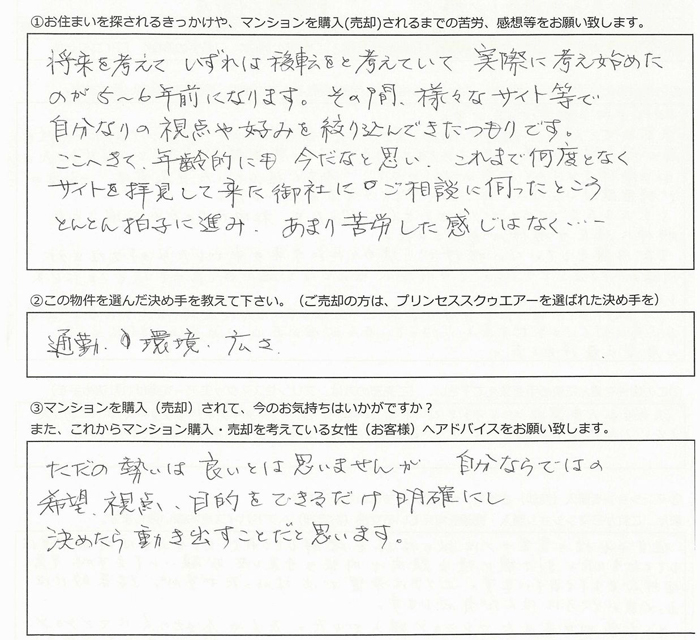 ①お住まいを探されるきっかけや、マンションを購入(売却)されるまでの苦労、感想等をお願い致します。
将来を考えて いずれは移転をと考えていて 実際に考え始めた
のが5〜6年前になります。その間、様々なサイト等で
自分なりの視点や好みを絞り込んできたつもりです。
ここへきて、年齢的にも 今だなと思い、これまで何度となく
サイトを拝見して来た御社に ご相談に伺ったところ
とんとん拍子に進み、あまり苦労した感じはなく・・・・
②この物件を選んだ決め手を教えて下さい。（ご売却の方は、プリンセススクゥエアーを選ばれた決め手を）
通勤、環境、広さ
③マンションを購入（売却）されて、今のお気持ちはいかがですか？
また、これからマンション購入・売却を考えている女性（お客様）へアドバイスをお願い致します。
ただの勢いは 良いとは思いませんが 自分ならではの
希望、視点、目的をできるだけ明確にし
決めたら動き出すことだと思います。